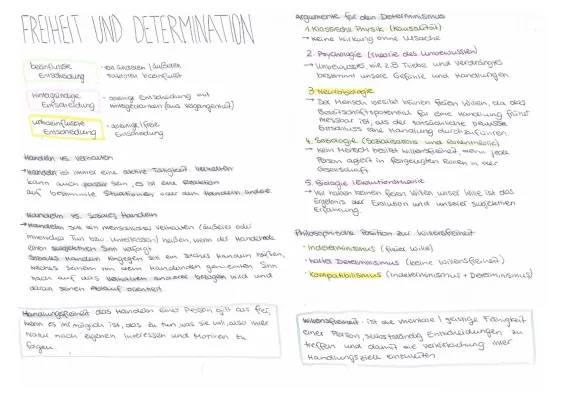 FREIHEIT UND DETERMINATION
beeinflusste
Entscheidung
- von inneren / äußeren
Faktoren beeinflusst
hintergründige
Entscheidung
- spontane Entscheidung mit
Hintergedanken (aus Vergangenheit)
unbeeinflusste
Entscheidung
- spontane / freie
Entscheidung
Handeln vs. Verhalten
→ Handeln ist immer eine aktive Tätigkeit. Verhalten
kann auch passiv sein, es ist eine Reaktion
auf bestimmte Situationen oder dem Handeln anderer
Handeln vs. Soziales Handeln
→ Handeln soll ein menschliches Verhalten (äußeres oder
innerliches Tun bzw. Unterlassen) heißen, wenn der Handelnde
einen subjektiven Sinn verfolgt
Soziales Handeln hingegen soll ein solches Handeln heißen,
welches seinem von dem Handelnden gemeinten Sinn
nach auf das Verhalten anderer bezogen wird und
daran seinen Ablauf orientiert
Handlungsfreiheit das Handeln einer Person gilt als frei,
wenn es ihr möglich ist, das zu tun, was sie will, also ihrer
Natur nach eigenen Interessen und Motiven zu
folgen.
Argumente für den Determinismus
1. Klassische Physik (Kausalität)
→ Keine Wirkung ohne Ursache
2. Psychologie (Theorie des Unbewussten)
→ Unbewusstes wie z.B. Triebe und Verdrängtes
bestimmt unsere Gefühle und Handlungen
3. Neurobiologie
→ Der Mensch besitzt keinen freien Willen, da das
Bereitschaftspotential für eine Handlung früher
messbar ist, als der tatsächliche bewusste
Entschluss eine Handlung durchzuführen.
4. Soziologie (Sozialisations- und Rollentheorie)
→ Kein Mensch besitzt Willensfreiheit, denn jede
Person agiert in festgelegten Rollen in der
Gesellschaft
5. Biologie (Evolutionstheorie
→ Wir haben keinen freien Willen unser Wille ist das
Ergebnis der Evolution und unserer subjektiven
Erfahrung.
Philosophische Position zur Willensfreiheit
· Indeterminismus (freier Wille)
· harter Determinismus (keine Willensfreiheit)
· Kompatibilismus (Indeterminismus + Determinismus)
Willensfreiheit: ist die mentale / geistige Fähigkeit
einer Person, selbstständig Entscheidungen zu
treffen und damit die Verwirklichung ihrer
Handlungsziele